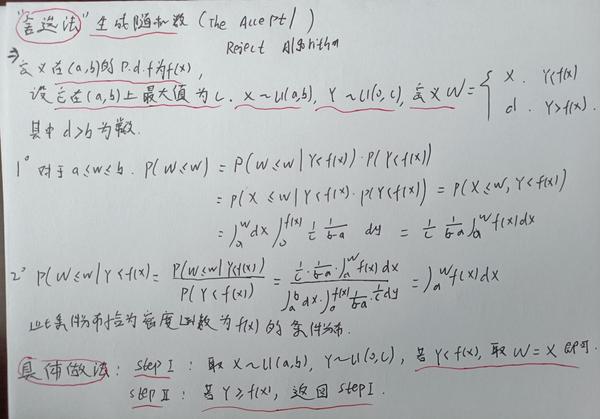 "舍选法" 生成随机数 (The Accept/
Reject Algorithm
⇒
定义在(a,b)的 p.d.f 为 f(x),
设它在(a,b)上最大值为 c. X~U(a,b), Y~U(0,c), 定义 W = { X. Y<f(x)
d. Y>f(x).
其中 d>b 为常数.
1° 对于 a≤w≤b. P(W≤w) = P(W≤w|Y<f(x))·P(Y<f(x))
= P(X≤w|Y<f(x))·P(Y<f(x)) = P(X≤w, Y<f(x))
= ∫_a^w dx ∫_0^{f(x)} 1/c 1/(b-a) dy = 1/c 1/(b-a) ∫_a^w f(x)dx
2° P(W≤w|Y<f(x) = P(W≤w|Y<f(x)) / P(Y<f(x)) = 1/c · 1/(b-a) · ∫_a^w f(x)dx / ∫_a^b dx · ∫_0^{f(x)} 1/(b-a) · 1/c dy = ∫_a^w f(x)dx
此条件分布恰为密度函数为 f(x) 的条件分布.
具体做法: step I: 取 X~U(a,b), Y~U(0,c), 若 Y<f(x), 取 W=X 即可.
step II: 若 Y≥f(x), 返回 step I.